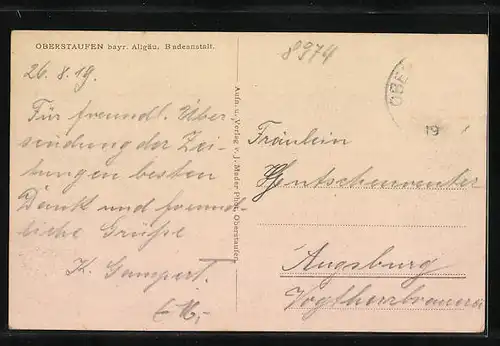 OBERSTAUFEN bayr. Allgäu, Badeanstalt.
8974
OBE
19
26.8.19.
Für freundl. Über
sendung der Zei-
tungen besten
Dank und freund-
liche Grüße
K. Gampert.
Aufn. u. Verlag v. J. Mader Phot. Oberstaufen
Fräulein
Augsburg